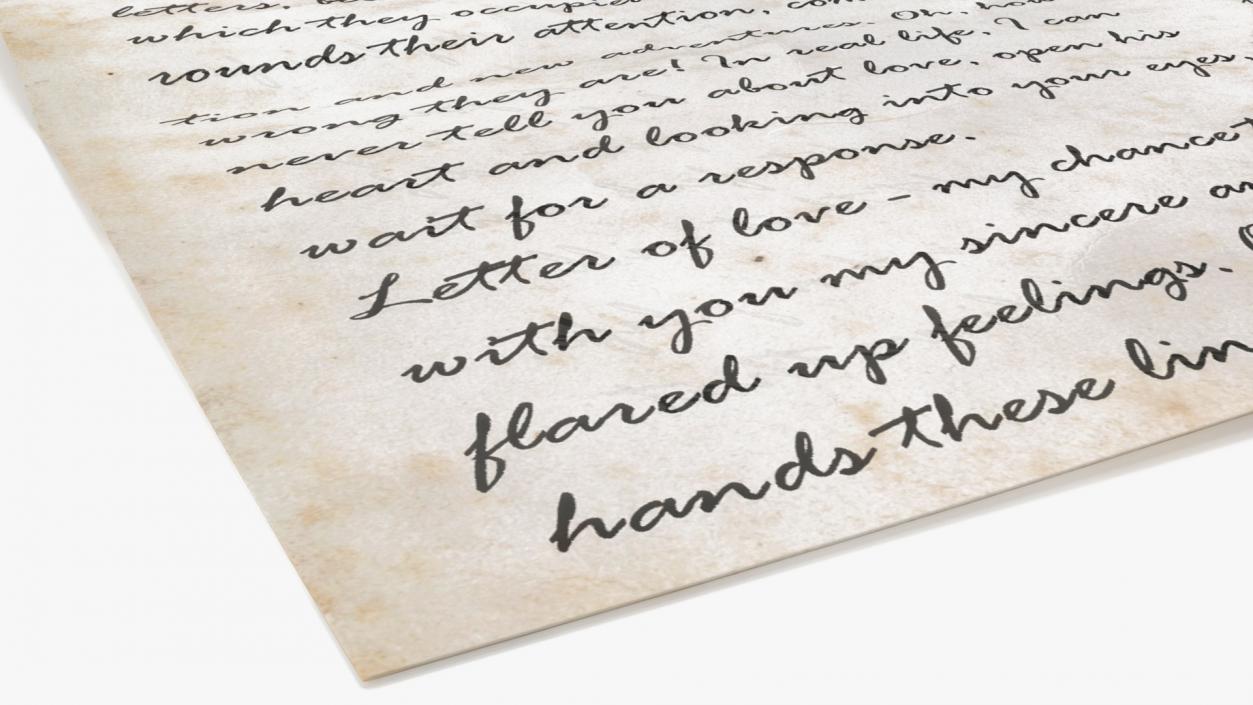 letters,
which they occupied
rounds their attention,
tion and new adventures. Oh, how
wrong they are! In real life, I can
never tell you about love, open his
heart and looking into your eyes,
wait for a response.
Letter of love - my chance
with you my sincere
flared up feelings.
hands these